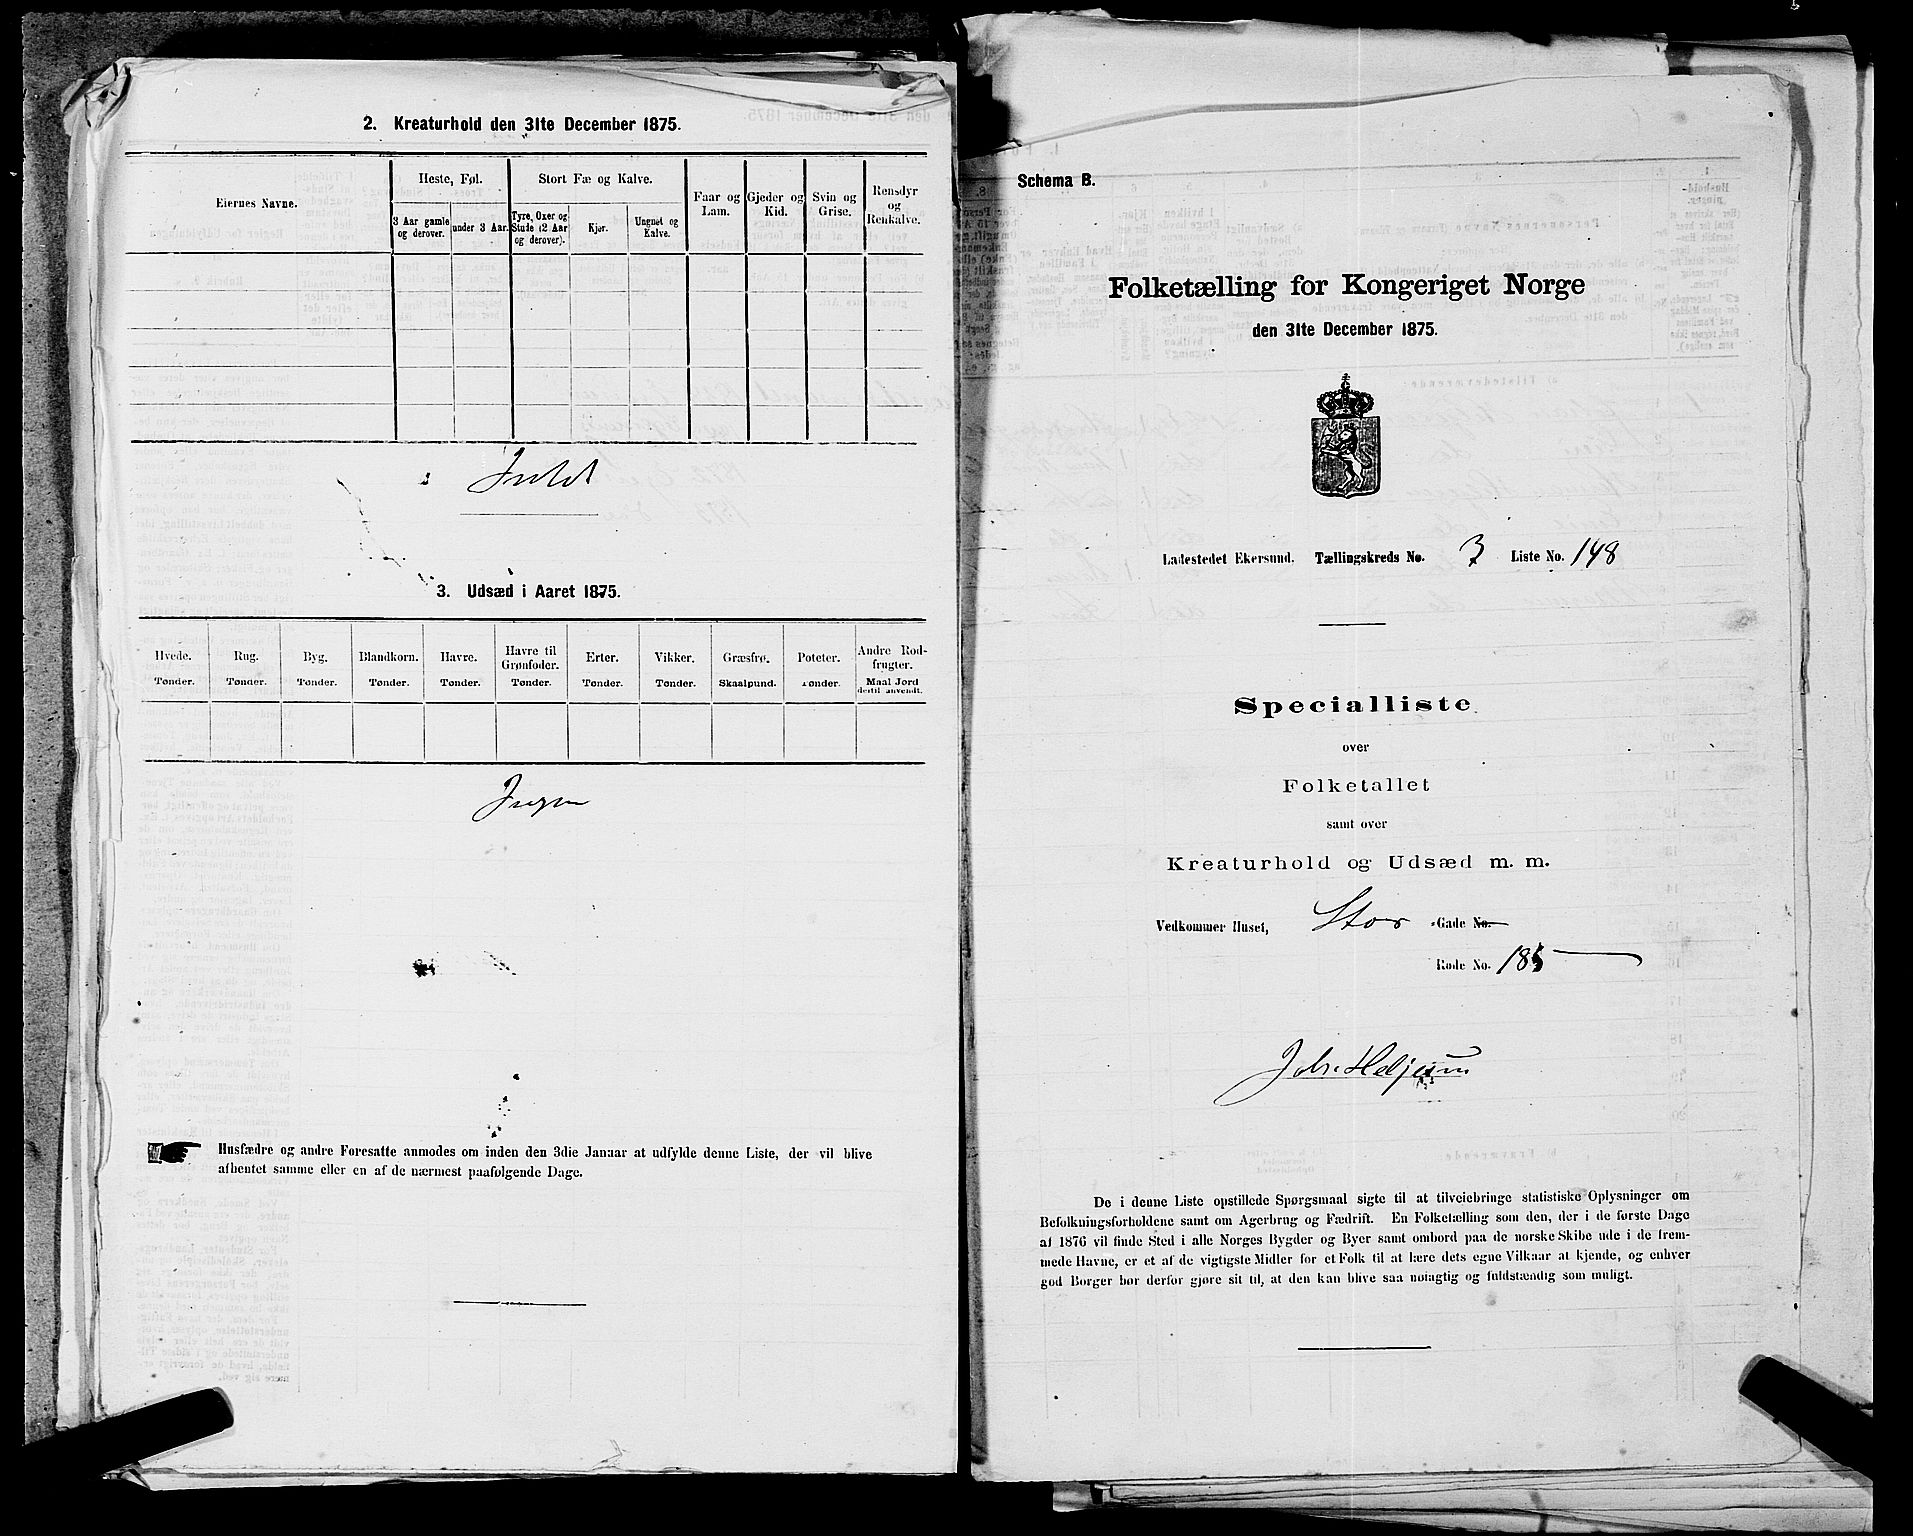 2. Kreaturhold den 31te December 1875.
Eiernes Navne.
Heste, Føl.
3 Aar gamle og derover.
under 3 Aar.
Stort Fæ og Kalve.
Tyre, Oxer og Stude (2 Aar og derover).
Kjør.
Ungnøt og Kalve.
Faar og Lam.
Gjeder og Kid.
Svin og Grise.
Rensdyr og Renkalve.
Intet
3. Udsæd i Aaret 1875.
Hvede. Tønder.
Rug. Tønder.
Byg. Tønder.
Blandkorn. Tønder.
Havre. Tønder.
Havre til Grønfoder. Tønder.
Erter. Tønder.
Vikker. Tønder.
Græsfrø. Skaalpund.
Poteter. Tønder.
Andre Rodfrugter. Maal Jord dertil anvendt.
Ingen
Husfædre og andre Foresatte anmodes om inden den 3die Januar at udfylde denne Liste, der vil blive
afhentet samme eller en af de nærmest paafølgende Dage.
Schema B.
Folketælling for Kongeriget Norge
den 31te December 1875.
Ladestedet Ekersund. Tællingskreds No. 3 Liste No. 148
Specialliste
over
Folketallet
samt over
Kreaturhold og Udsæd m. m.
Vedkommer Huset, Stor -Gade No.
Rode No. 185
De i denne Liste opstillede Spørgsmaal sigte til at tilveiebringe statistiske Oplysninger om
Befolkningsforholdene samt om Agerbrug og Fædrift. En Folketælling som den, der i de første Dage
af 1876 vil finde Sted i alle Norges Bygder og Byer samt ombord paa de norske Skibe ude i de frem-
mede Havne, er et af de vigtigste Midler for et Folk til at lære dets egne Vilkaar at kjende, og enhver
god Borger bør derfor gjøre sit til, at den kan blive saa nøiagtig og fuldstændig som muligt.